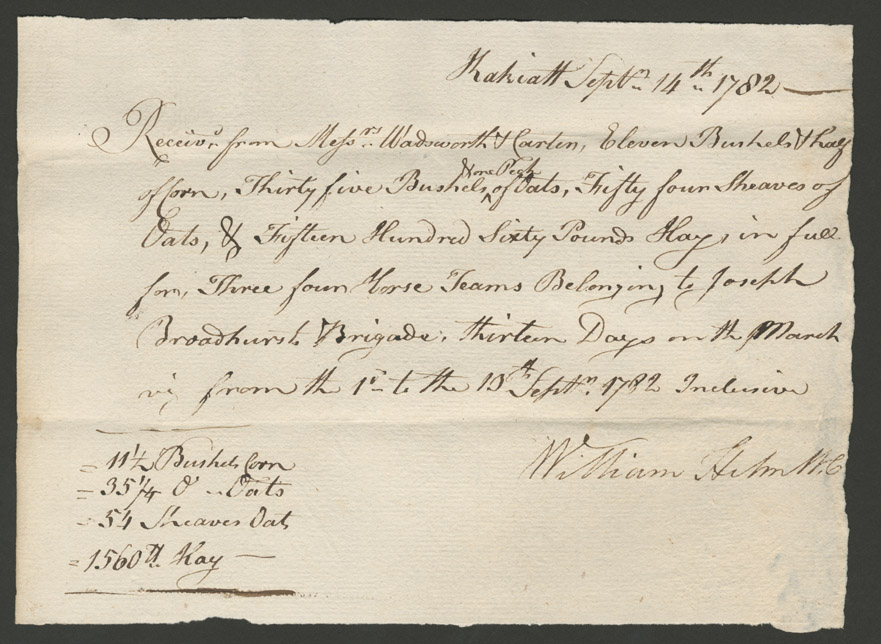 Kakiatt Septr. 14th. 1782
Receivd from Messrs. Wadsworth & Carter, Eleven Bushels & half
& one Peck
of Corn, Thirty five Bushels ^ of Oats, Fifty four Sheaves of
Oats, & Fifteen Hundred Sixty Pounds Hay, in full
for, Three four Horse Teams Belonging to Joseph
Broadhursts Brigade, thirteen Days on the March
viz from the 1st to the 13th Septr. 1782 Inclusive
William Helm
= 11 1/2 Bushels Corn
= 35 1/4 Do .. Oats
= 54 Sheaves Oats
= 1560 lb. Hay